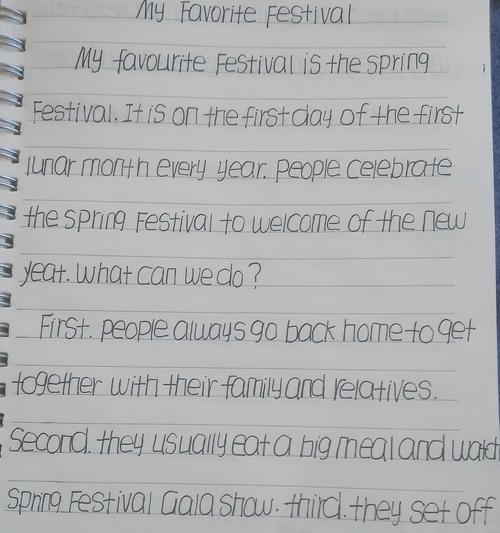 My Favorite Festival
My favourite Festival is the spring
Festival. It is on the first day of the first
lunar month every year. people celebrate
the spring Festival to welcome of the new
year. what can we do?
First. people always go back home to get
together with their family and relatives.
Second. they usually eat a big meal and watch
spring Festival Gala show. third. they set off